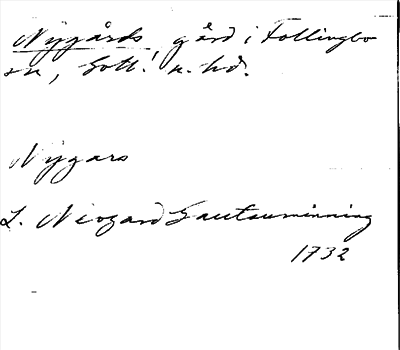 Nygårds, gård i Follingbo
sn, Gotl. n. hd.
Nygars
L. Neogard Gautauminning
1732